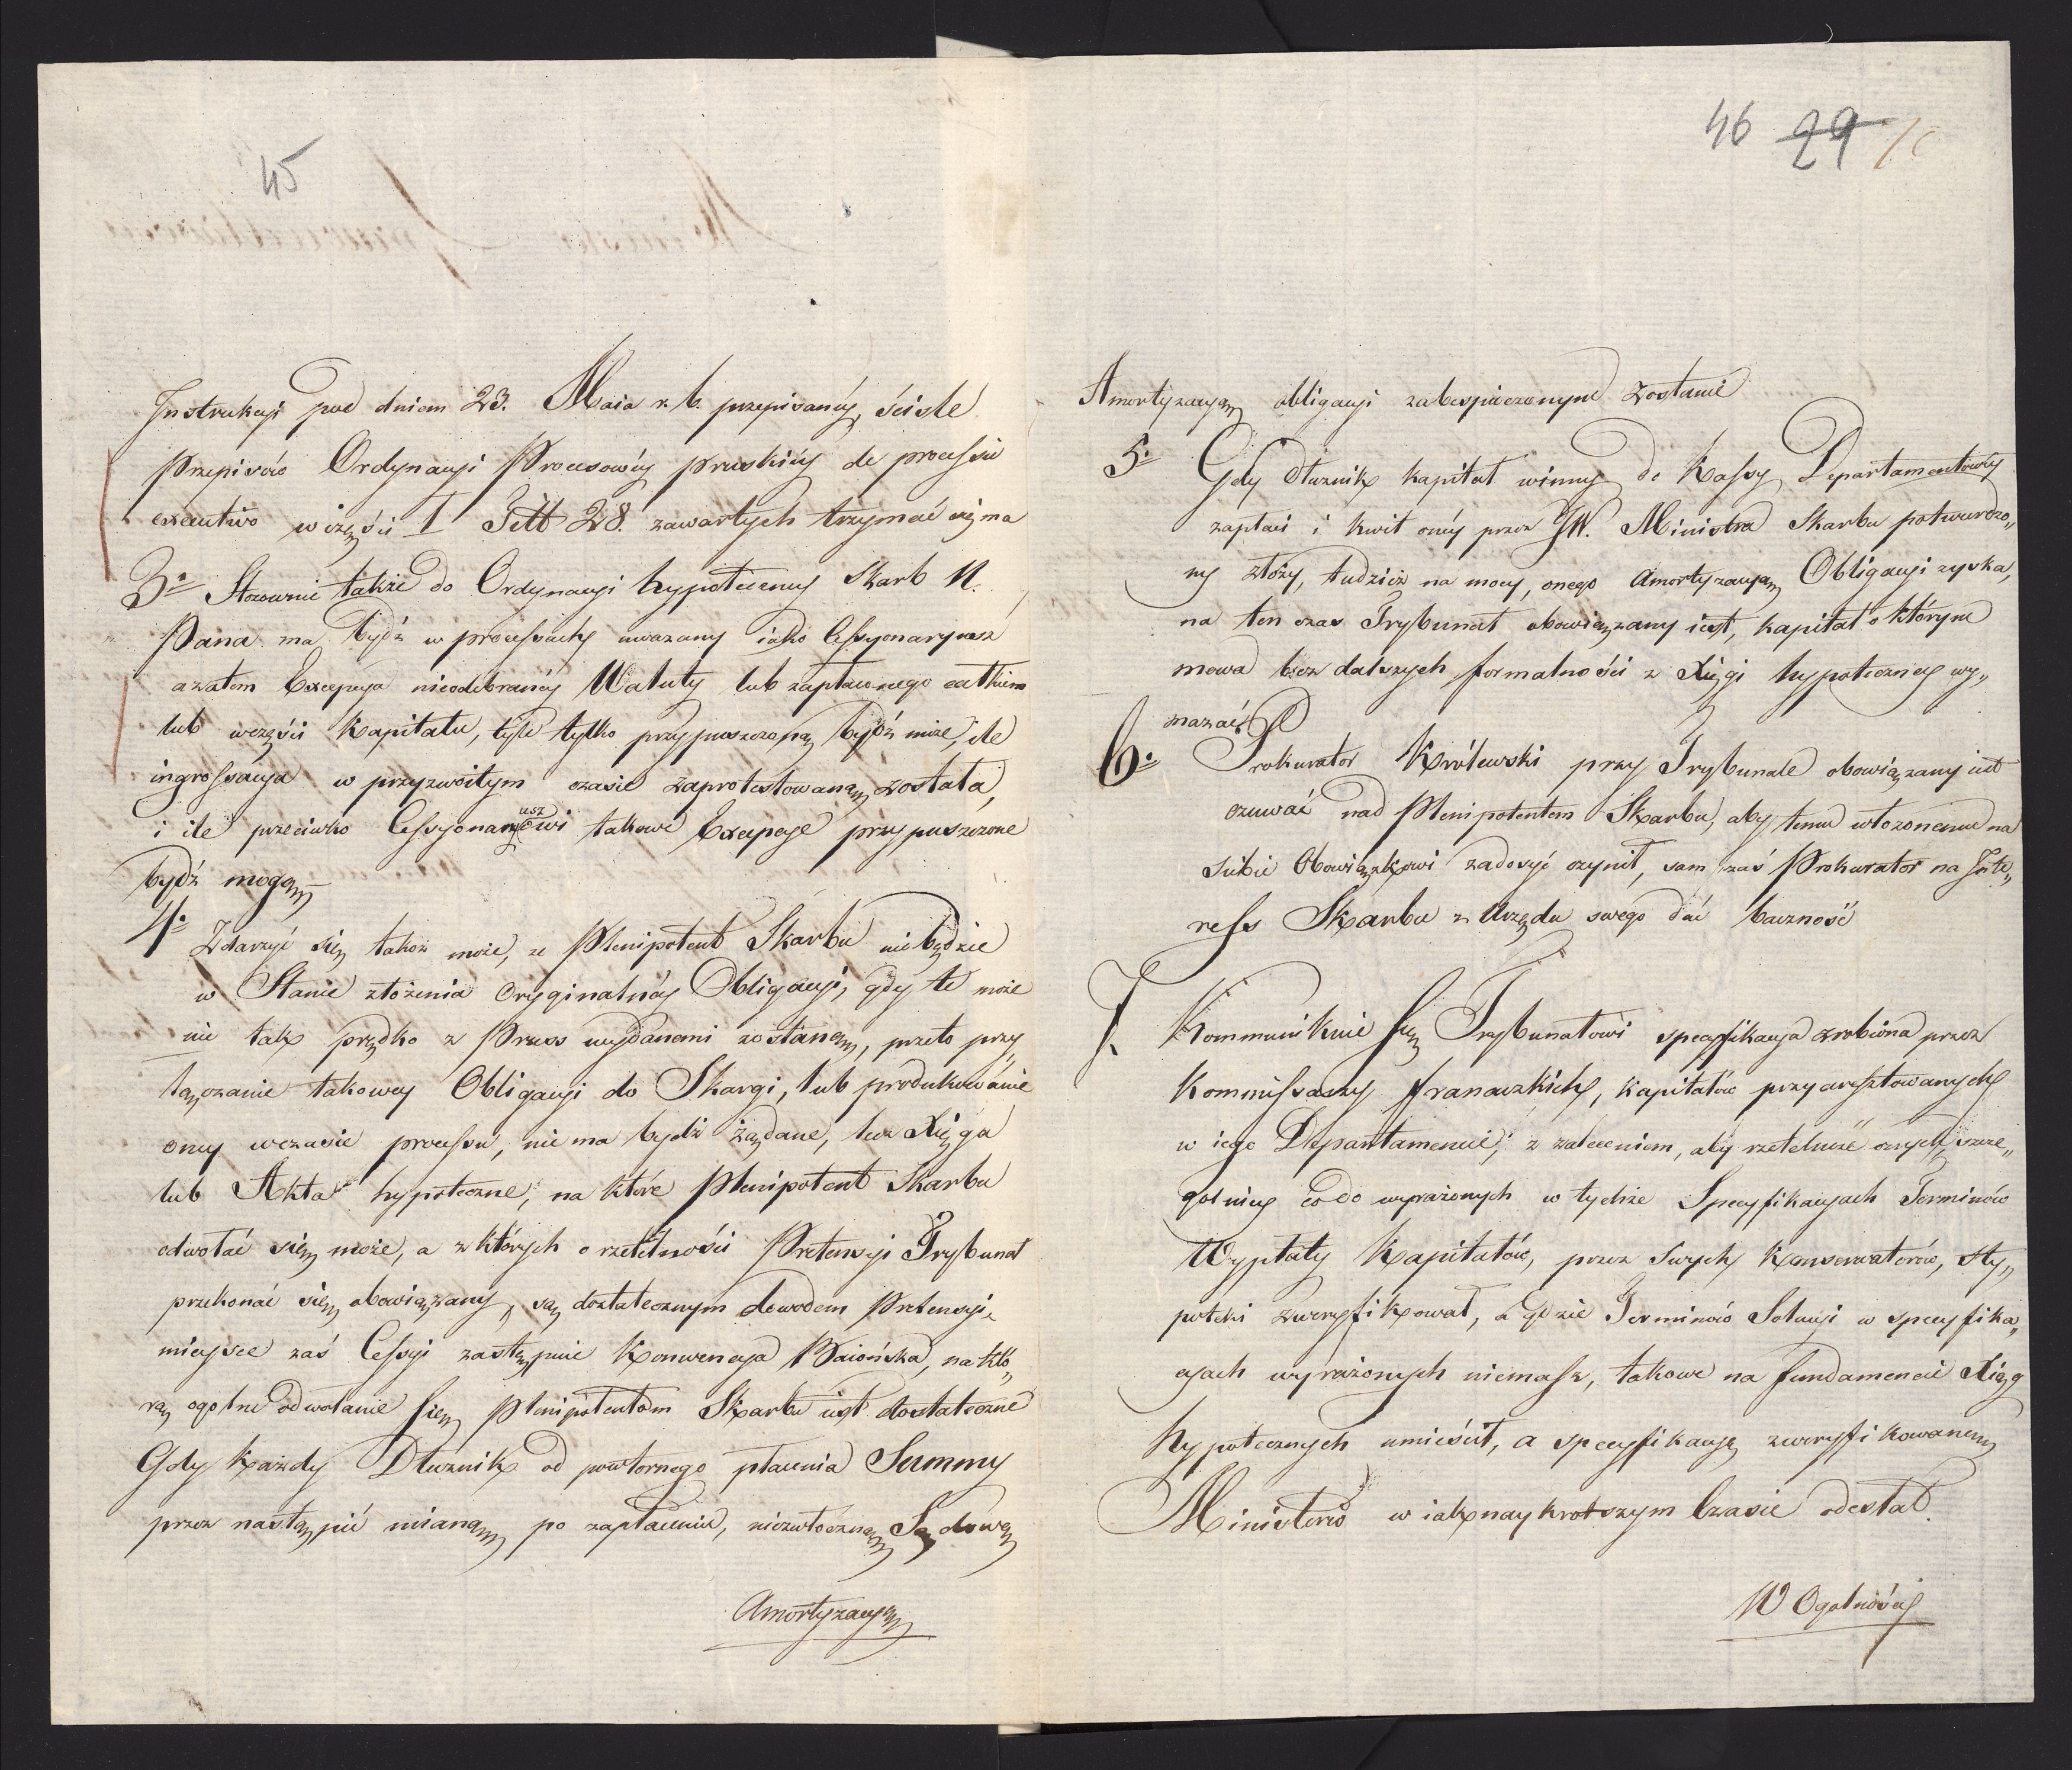 45
Instrukcyi pod dniem 23. Maia r. b. przepisanéy, ściśle
Przepisów Ordynacyi Processowéy pruskiéy de processu
executivo w części I Titt 28. zawartych trzymać się ma
3o Stosownie także do Ordynacyi hypoteczney Skarb N.
Pana ma bydź w processach uważany iako Cessyonaryusz
a zatem Excepcya nieodebranéy Waluty lub zapłaconego całkiem
lub wczęści Kapitału, tyle tylko przypuszczoną bydź może, ile
ingrossacya w przyzwoitym czasie zaprotestowaną została,
i ile przeciwko Cessyonaryuszowi takowe Excepcye przypuszczone
bydź mogą
4o Zdarzyć się także może, że Plenipotent Skarbu nie będzie
w Stanie złożenia Oryginalnéy Obligacyi, gdy te może
nie tak prędko z Pruss wydanemi zostaną, przeto przy
łączanie takowey Obligacyi do Skargi, lub produkowanie
oney wczasie processu, nie ma bydź żądane, lecz Xięga
lub Akta hypoteczne, na które Plenipotent Skarbu
odwołać się może, a z których o rzetelności Pretensyi Trybunał
przekonać się obowiązany, są dostatecznym dowodem Pretensyi,
mieysce zaś Cessyi zastępuie Konwencya Baiońska, na któ„
rą ogólne odwołanie się Plenipotentom Skarbu iest dostateczne
Gdy każdy Dłużnik od powtornego płacenia Summy
przez nastąpić mianą po zapłaceniu, niezwłoczną Sądową
Amortyzacyą
46 29
Amortyzacyą obligacyi zabespieczonym zostanie
5o Gdy dłużnik kapitał winny do Kassy Departamentowéy
zapłaci i kwit onéy przez JW. Ministra Skarbu potwierdzo„
ny złoży, tudzież na mocy, onego Amortyzacyą Obligacyi zyska,
na ten czas Trybunał obowiązany iest, kapitał o którym
mowa bez dalszych formalności z Xięgi hypoteczney wy„
mazać
6o Prokurator Królewski przy Trybunale obowiązany iest
czuwać nad Plenipotentem Skarbu, aby temu włożonemu na
siebie Obowiązkowi zadosyć czynił, sam zaś Prokurator na Inte„
ress Skarbu z Urzędu swego dać baczność
7. Kommunikuie się Trybunałowi specyfikacya zrobiona przez
Kommissarzy francuzkich, kapitałów przyaresztowanych
w iego Departamencie, z zaleceniem, aby rzetelność onych, szcze„
gólniey co do wyrażonych w tychże Specyfikacyach Terminów
Wypłaty Kapitałów, przez swych Konserwatorów, Hy„
poteki zweryfikował, a gdzie Terminów Solucyi w specyfika„
cyach wyrażonych niemasz, takowe na fundamencie Xiąg
hypotecznych umieścił, a specyfikacyę zweryfikowaną
Ministrowi w iaknaykrotszym Czasie odesłał.
W Ogolnościy